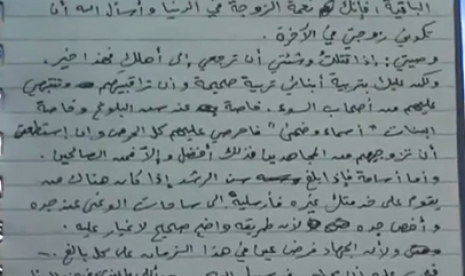 الباقية، فإنك نعمة الزوجة في الدنيا وأسأل الله أن
تكوني زوجتي في الآخرة.
وصيتي: إذا قتلت وشئتي أن ترجعي إلى أهلك فهذا خير.
ولكن عليك بتربية أبنائي تربية صحيحة وأن تراقبيهم وتنتبهي
عليهم من أصحاب السوء. خاصة عند سن البلوغ وخاصة
البنات "أسماء وضحى" فاحرصي عليهم كل الحرص وإن إستطعتي
أن تزوجيهم من المجاهدين فذلك أفضل وإلا فمن الصالحين.
وأما أسامة فإذا بلغ سن الرشد إذا كان هناك من
يقوم على خدمتك غيره فأرسليه إلى ساحات الوغى عند جده
وأخص جده لأن طريقه واضح صحيح لا غبار عليه.
ولأن الجهاد فرض عين في هذا الزمان على كل بالغ.